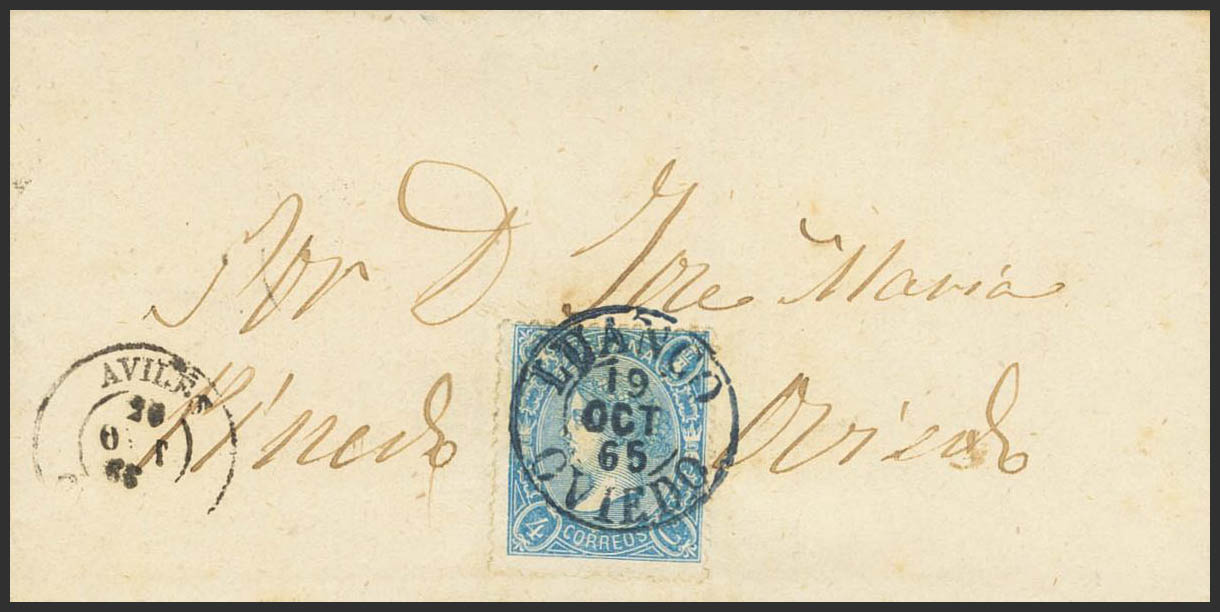 Sor D Jose Maria
Pinedo Oviedo
AVILES
20
OCT
65
LUANCO
19
OCT
65
OVIEDO
4 CORREOS Cs